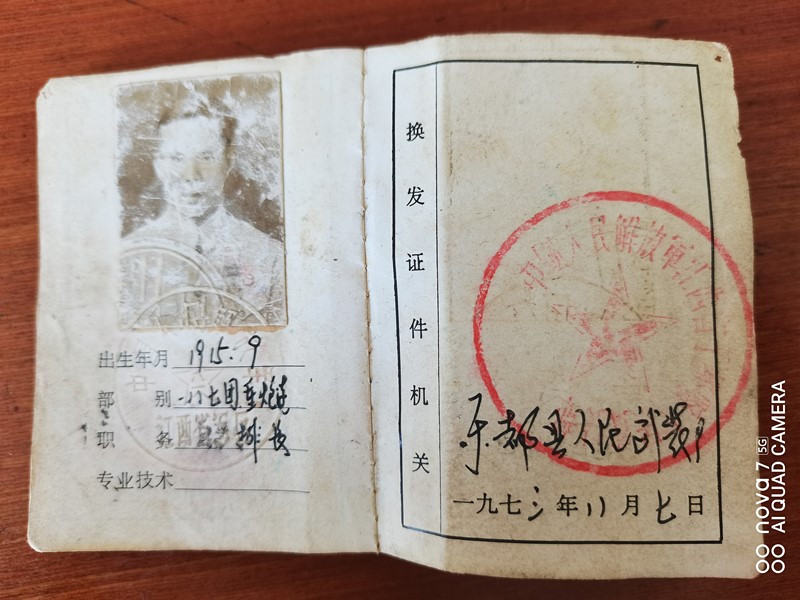 出生年月 1915.9
部别 一八七团重炮连
职务 排长
专业技术
换发证件机关
中国人民解放军江西省
于都县人民武装部
一九七三年八月七日
nova 7 5G
AI QUAD CAMERA